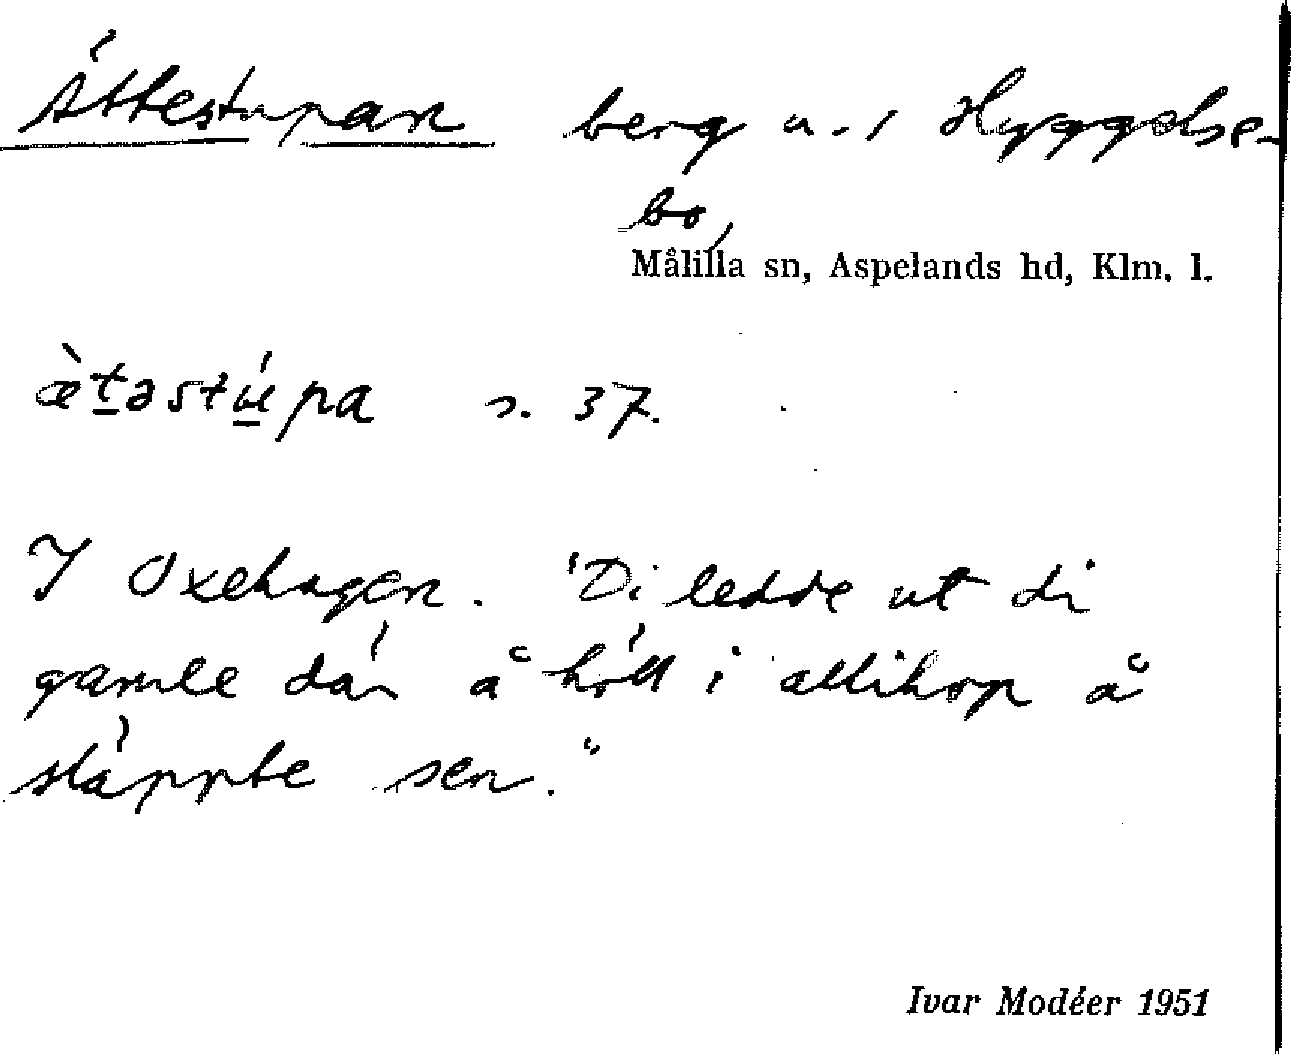 Ättestupan berg u. 1 Hyggelse-
bo,
Målilla sn, Aspelands hd, Klm. l.
æ̀t̠əstú̠pa s. 37.
I Oxehagen. "Di ledde ut di
gamle där å höll i allihop å
släppte sen."
Ivar Modéer 1951